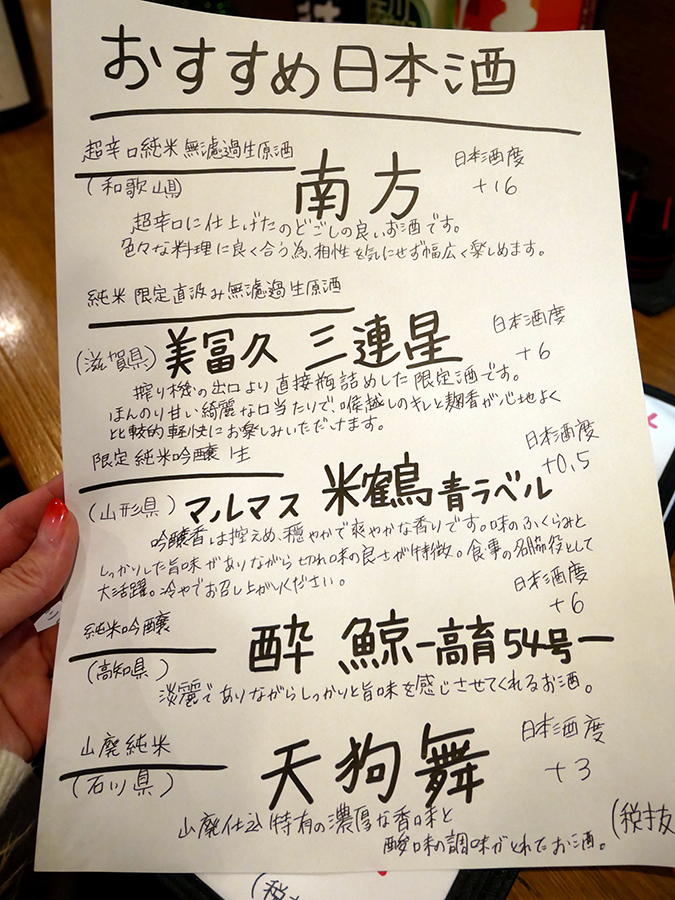 おすすめ日本酒
超辛口純米無濾過生原酒
(和歌山県)
南方
日本酒度
+16
超辛口に仕上げたのどごしの良いお酒です。
色々な料理に良く合う為、相性を気にせず幅広く楽しめます。
純米 限定直汲み無濾過生原酒
(滋賀県)
美冨久 三連星
日本酒度
+6
搾り機の出口より直接瓶詰めした限定酒です。
ほんのり甘い綺麗な口当たりで、喉越しのキレと麹香が心地よく
比較的軽快にお楽しみいただけます。
限定 純米吟醸 生
(山形県)
マルマス 米鶴 青ラベル
日本酒度
+0.5
吟醸香は控えめ、穏やかで爽やかな香りです。味のふくらみと
しっかりした旨味がありながら切れ味の良さが特徴。食事の名脇役として
大活躍。冷やでお召し上がりください。
純米吟醸
(高知県)
酔鯨 -高育54号-
日本酒度
+6
淡麗でありながらしっかりと旨味を感じさせてくれるお酒。
山廃純米
(石川県)
天狗舞
日本酒度
+3
山廃仕込特有の濃厚な香味と
酸味の調味がとれたお酒。
(税抜
(税